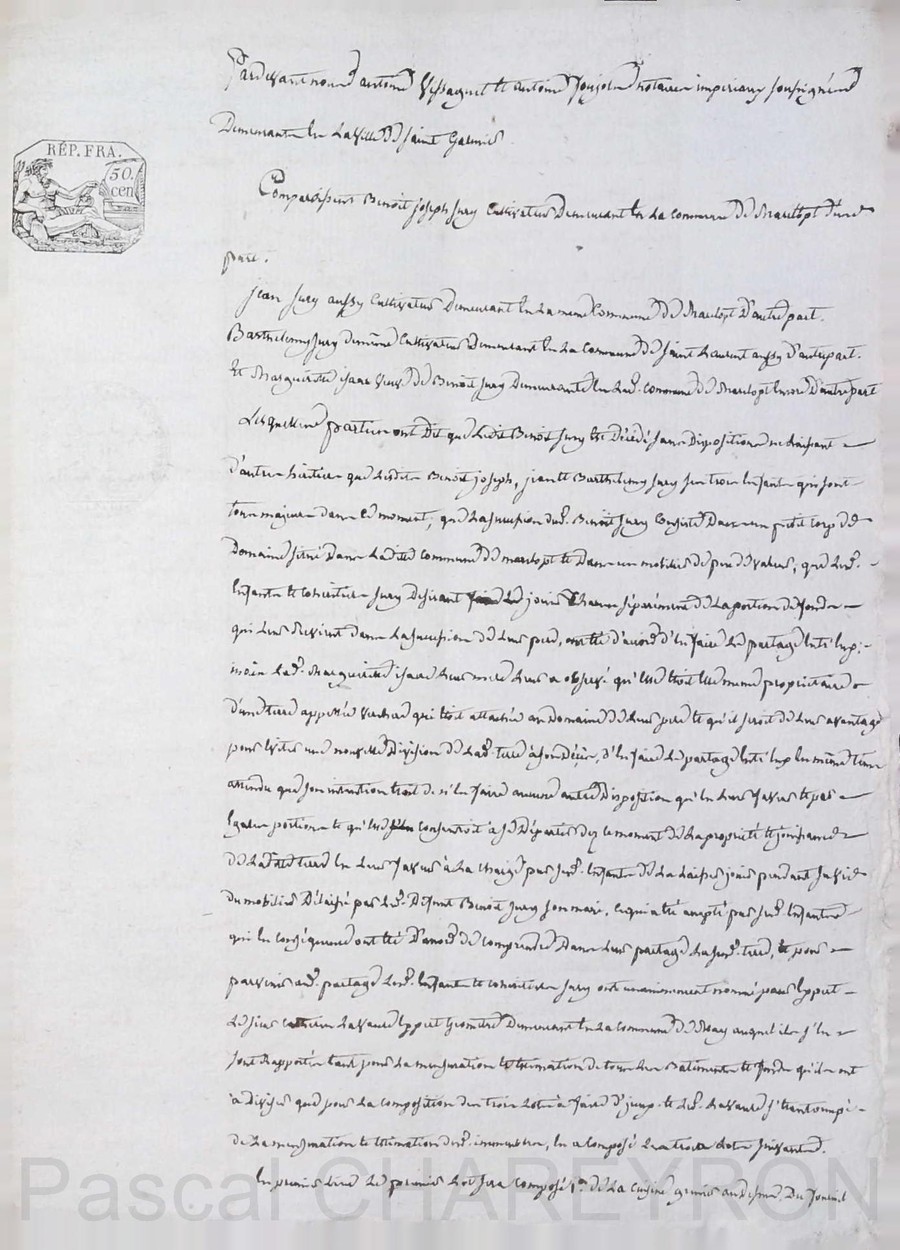 RÉP. FRA.
50.
cen
Pardevant nous antoine Vessaguet et antoine notaires imperiaux soussignés
Demeurants en La Ville de Saint Galmier
Comparoissent Benoit joseph Jury Cultivateur Demeurant En La commune de Marclopt d'une
part.
jean Jury aussy Cultivateur Demeurant En La meme Commune de Marclopt D'autre part.
Barthelemy Jury Cultivateur Demeurant En La Commune de Saint Laurent aussy D'autre part.
Et Marguerite veuve de Benoit Jury Demeurante En Lad. commune de Marclopt Encore D'autre part
Lesquelles parties ont Dit que Ledit Benoit Jury Est Décédé sans Disposition ne laissant
d'autres héritiers que Lesdits Benoit joseph, jean et Barthelemy Jury ses trois Enfants qui sont
tous majeurs dans ce moment, que La succession dud. Benoit Jury Consiste Dans un petit corps de
Domaine situé Dans Ladite commune de marclopt et Dans un mobilier de peu de valeur, que Lesd.
Enfants et cohéritiers Jury Desirant jouir Chacun séparément de La portion de fonds
qui Leur Revient dans La succession de Leur pere, ont été d'accord d'En faire Le partage Entr'Eux,
mais Lad. Marguerite Leur mere Leur a observé qu'Elle Etoit Elle meme propriétaire
D'une terre appellée qui Etoit attachée au Domaine de Leur pere et qu'il seroit de Leur avantage
pour Eviter une nouvelle Division de Lad. terre à son Décès, d'En faire Le partage Entr'Eux En même tems
attendu que son intention Etoit de n'En faire aucune autre Disposition qu'En Leur faveur Et par
Egales portions et qu'Elle Consentoit à se Départir dez ce moment de La propriété Et jouissance
de Ladite terre En Leur faveur à La Charge par sesd. Enfants de La Laisser jouir pendant sa vie
du mobilier Délaissé par Led. Défunt Benoit Jury son mari, ce qui a été accepté par sesd. Enfants
qui En conséquence ont été D'accord de comprendre Dans Leur partage La susd. terre, Et pour
parvenir aud. partage Lesd. Enfants et cohéritiers Jury ont unanimement nommé pour Expert
Le sieur Lavaure Expert Géomètre Demeurant En La Commune de auquel ils s'En
sont Rapportés tant pour La mensuration Et Estimation de tous Les Batiments et fonds qu'ils ont
à Diviser que pour La composition des trois Lots à faire d'iceux. et Led. Lavaure s'Etant occupé
de La mensuration et Estimation desd. immeubles, En a composé Les trois Lots suivants.
En premier Lieu Le premier Lot sera Composé 1° de La Cuisine grenier au Dessus, Du
Pascal CHAREYRON